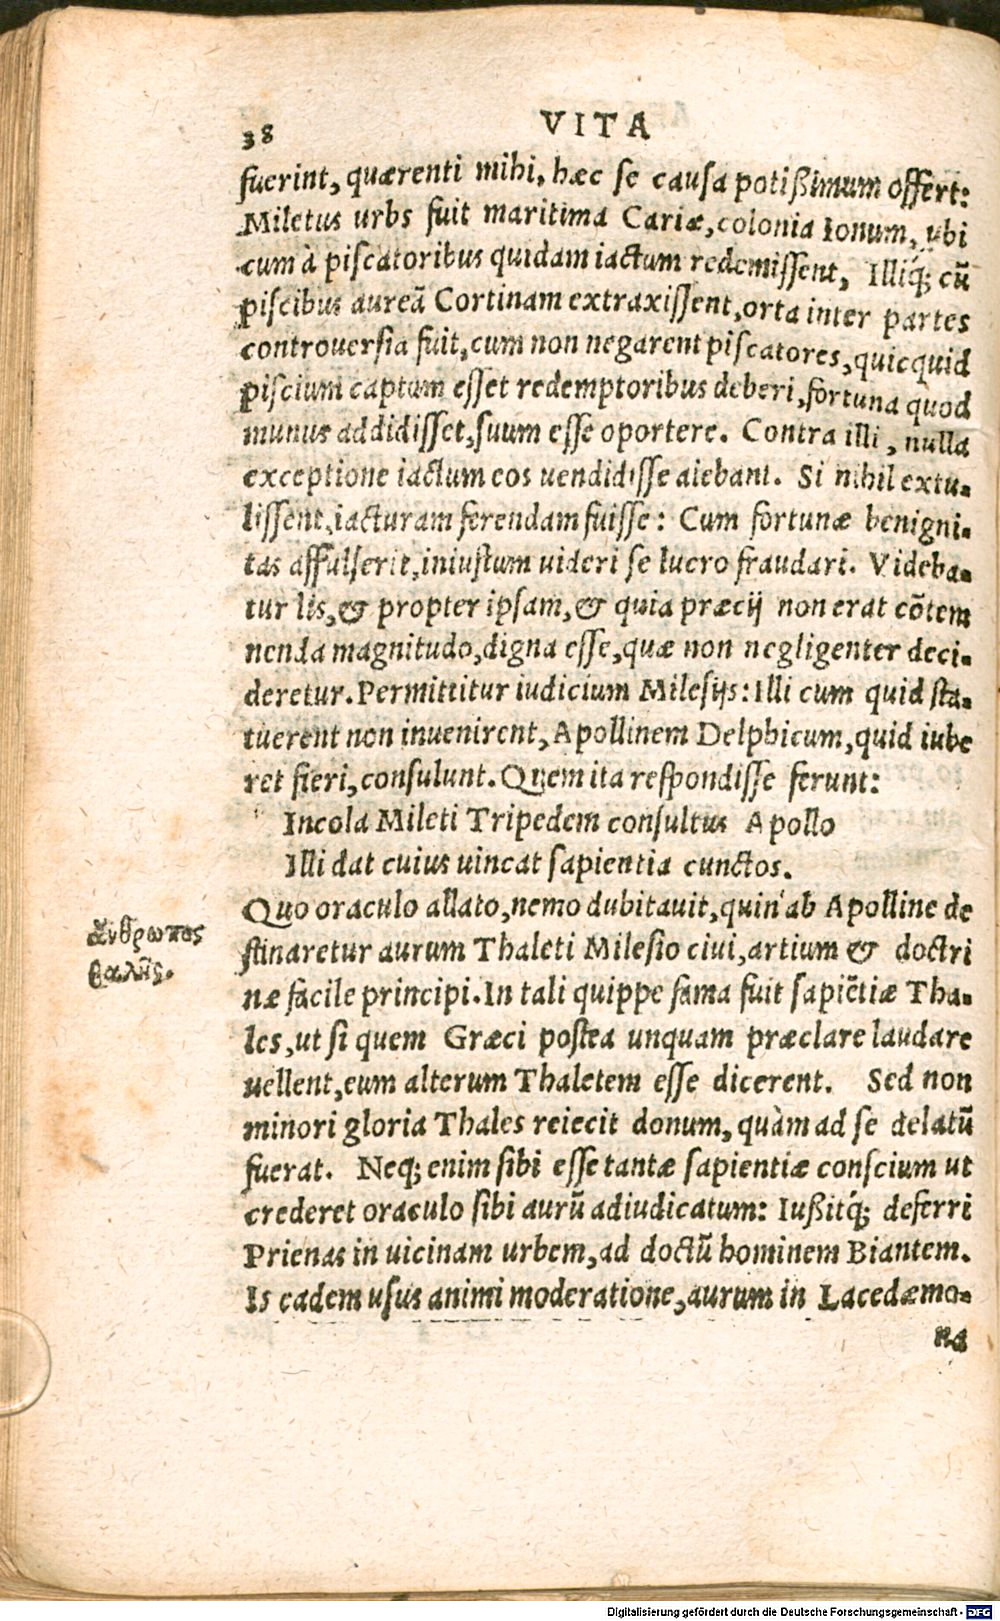 38 VITA
fuerint, quærenti mihi, hæc se causa potißimum offert:
Miletus urbs fuit maritima Cariæ, colonia Ionum, ubi
cum à piscatoribus quidam iactum redemissent, Illiq́; cũ
piscibus aureã Cortinam extraxissent, orta inter partes
controuersia fuit, cum non negarent piscatores, quicquid
piscium captum esset redemptoribus deberi, fortuna quod
munus addidisset, suum esse oportere. Contra illi, nulla
exceptione iactum eos uendidisse aiebant. Si nihil extu-
lissent, iacturam ferendam fuisse: Cum fortunæ benigni-
tas affulserit, iniustum uideri se lucro fraudari. Videba-
tur lis, & propter ipsam, & quia præcij non erat cõtem
nenda magnitudo, digna esse, quæ non negligenter deci-
deretur. Permittitur iudicium Milesijs: Illi cum quid sta-
tuerent non inuenirent, Apollinem Delphicum, quid iube
ret fieri, consulunt. Quem ita respondisse ferunt:
Incola Mileti Tripedem consultus Apollo
Illi dat cuius uincat sapientia cunctos.
Quo oraculo allato, nemo dubitauit, quin ab Apolline de
stinaretur aurum Thaleti Milesio ciui, artium & doctri
næ facile principi. In tali quippe fama fuit sapiẽtiæ Tha-
les, ut si quem Græci postea unquam præclare laudare
uellent, eum alterum Thaletem esse dicerent. Sed non
minori gloria Thales reiecit donum, quàm ad se delatũ
fuerat. Neq; enim sibi esse tantæ sapientiæ conscium ut
crederet oraculo sibi aurũ adiudicatum: Iußitq́; deferri
Prienas in uicinam urbem, ad doctũ hominem Biantem.
Is eadem usus animi moderatione, aurum in Lacedæmo-
na
ἄνθρωπος
θαλῆς.
Digitalisierung gefördert durch die Deutsche Forschungsgemeinschaft - DFG